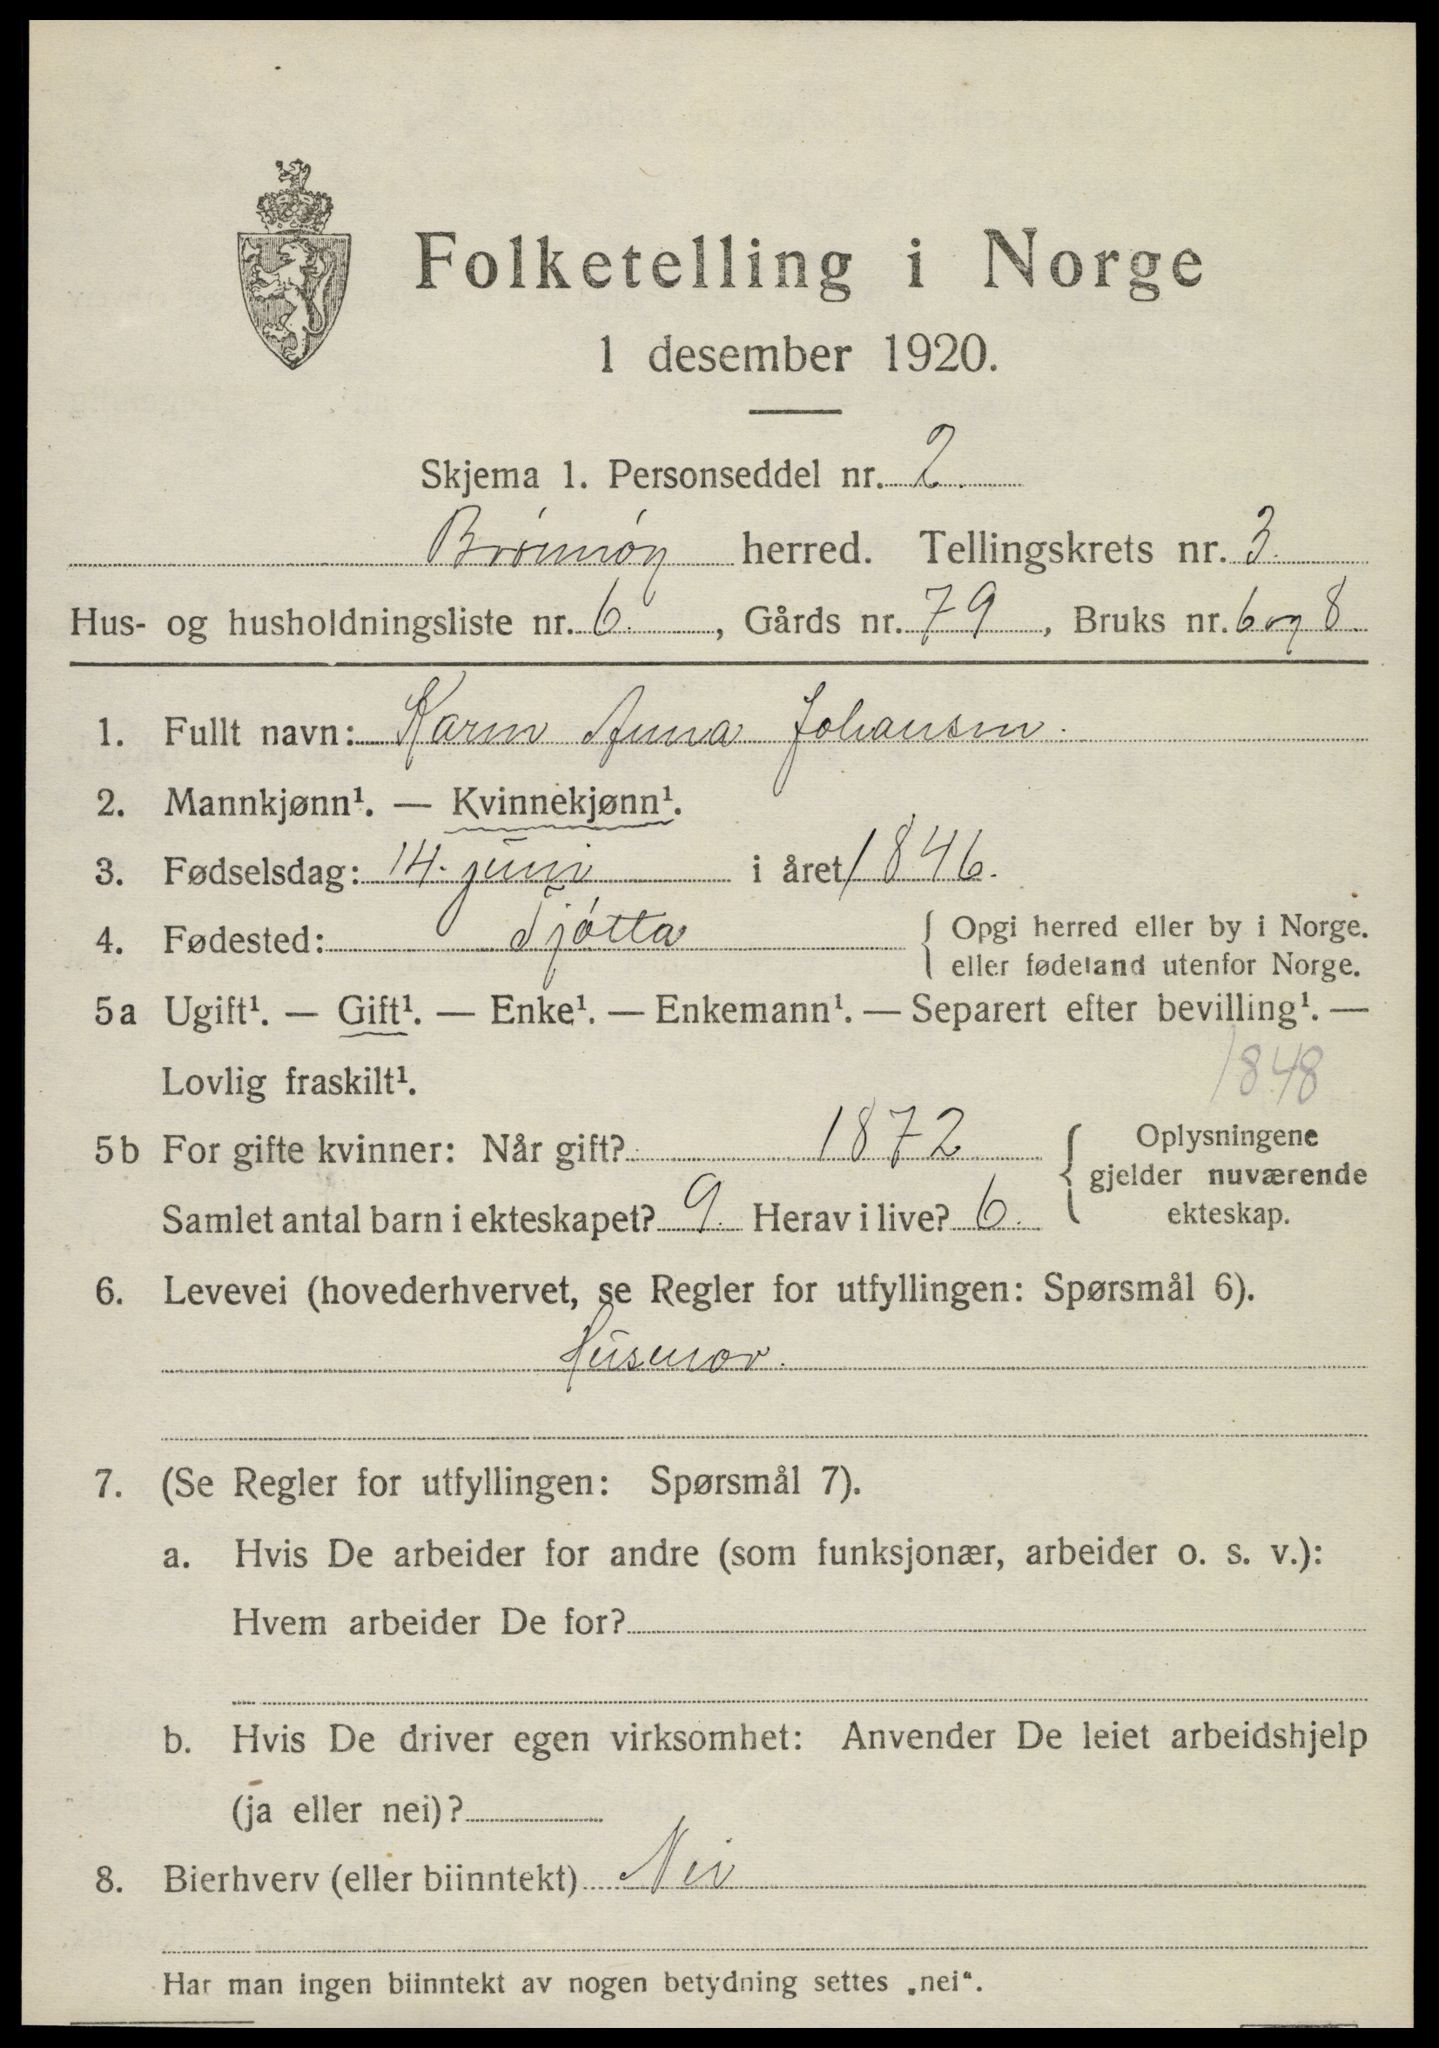 Folketelling i Norge
1 desember 1920.
Skjema 1. Personseddel nr. 2.
Brönnöy herred. Tellingskrets nr. 3.
Hus- og husholdningsliste nr. 6. , Gårds nr. 79 , Bruks nr. 6 og 8.
1. Fullt navn: Karen Anna Johansen.
2. Mannkjønn¹. — Kvinnekjønn¹.
3. Fødselsdag: 14. juni i året 1846.
4. Fødested: Tjøtta { Opgi herred eller by i Norge.
eller fødeland utenfor Norge.
5a Ugift¹. — Gift¹. — Enke¹. — Enkemann¹. — Separert efter bevilling¹. —
Lovlig fraskilt¹.
1848
5b For gifte kvinner: Når gift? 1872 { Oplysningene
gjelder nuværende
Samlet antal barn i ekteskapet? 9. Herav i live? 6. ekteskap.
6. Levevei (hovederhvervet, se Regler for utfyllingen: Spørsmål 6).
Husmor.
7. (Se Regler for utfyllingen: Spørsmål 7).
a. Hvis De arbeider for andre (som funksjonær, arbeider o. s. v.):
Hvem arbeider De for?
b. Hvis De driver egen virksomhet: Anvender De leiet arbeidshjelp
(ja eller nei)?
8. Bierhverv (eller biinntekt) Nei
Har man ingen biinntekt av nogen betydning settes „nei“.